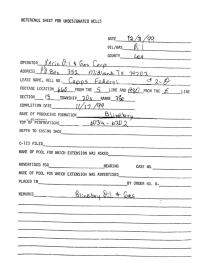 REFERENCE SHEET FOR UNDESIGNATED WELLS
DATE 12/3/99
OIL/GAS Oil
COUNTY Lea
OPERATOR Xeric Oil & Gas Corp
ADDRESS PO Box 352 Midland Tx 79702
LEASE NAME, WELL NO. Capps Federal # 2-
FOOTAGE LOCATION 660 FROM THE S LINE AND FROM THE E LINE
SECTION 13 TOWNSHIP 20s RANGE 38e
COMPLETION DATE 11/17/99
NAME OF PRODUCING FORMATION Blinebry
TOP OF PERFORATIONS 6034 - 6202
DEPTH TO CASING SHOE
C-123 FILED
NAME OF POOL FOR WHICH EXTENSION WAS ASKED
ADVERTISED FOR HEARING CASE NO.
NAME OF POOL FOR WHICH EXTENSION WAS ADVERTISED
PLACED IN BY ORDER NO. R-
REMARKS Blinebry Oil & Gas